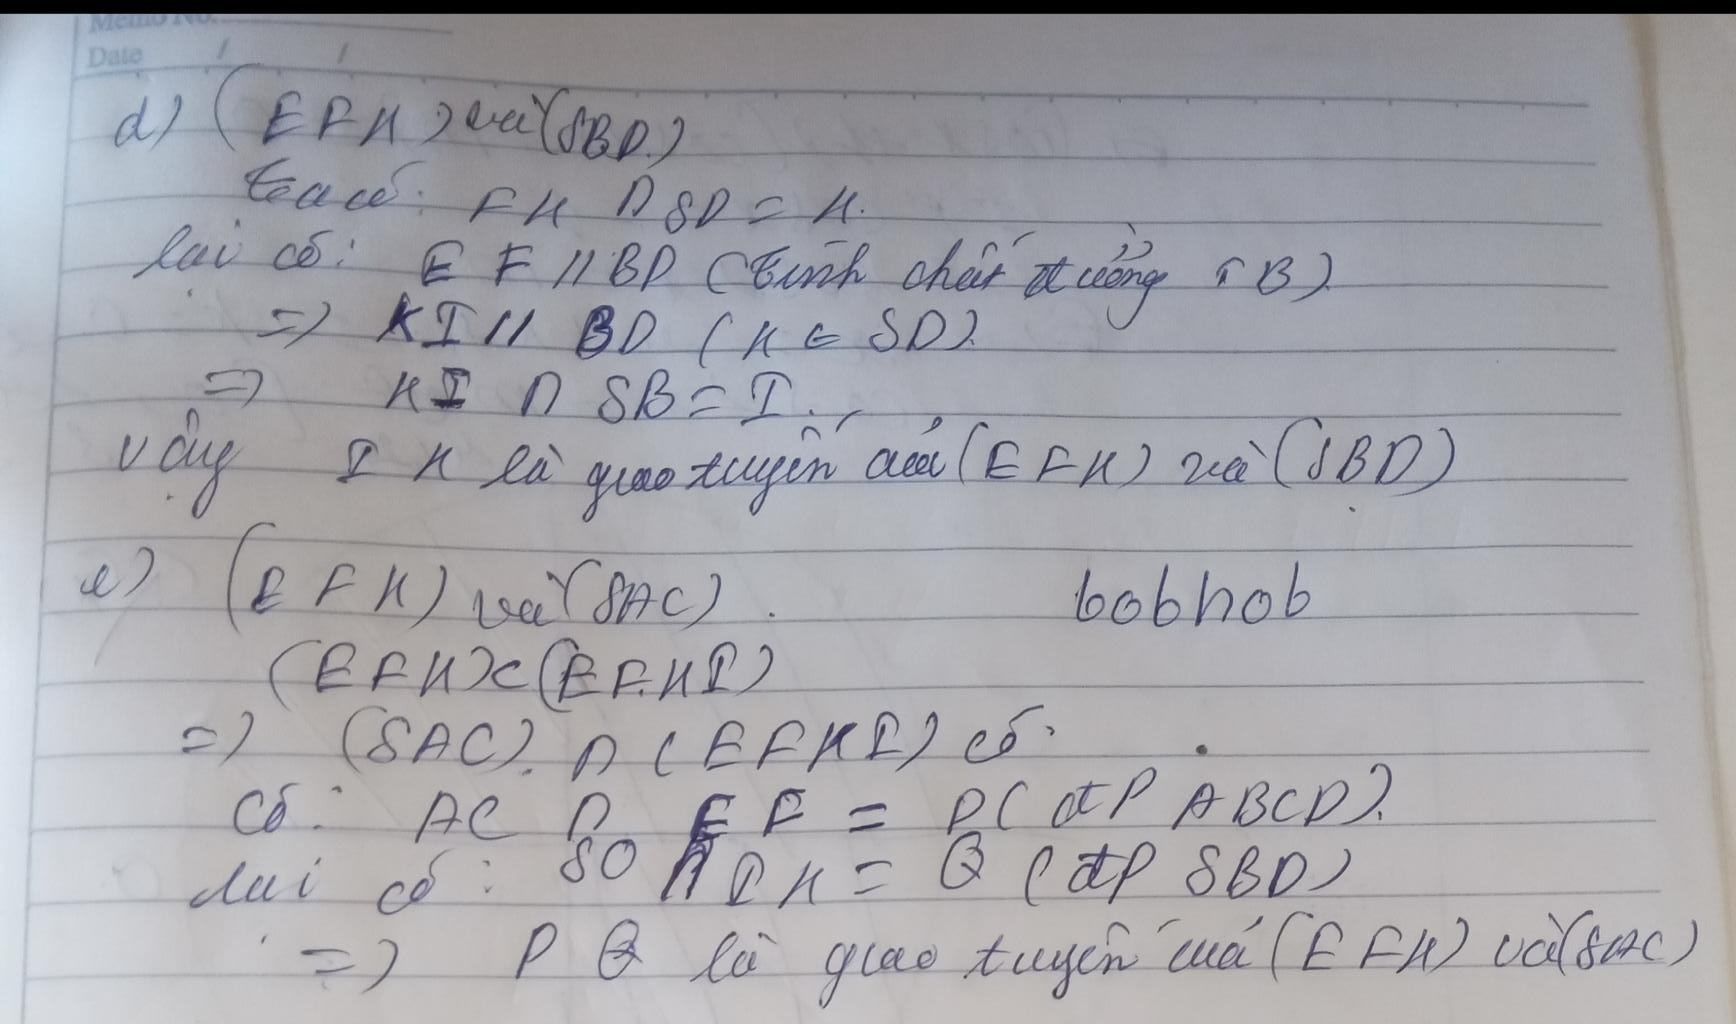 Memo No.
Date / /
d) (EFK) và (SBD)
ta có: FK ∩ SD = K.
lại có: EF // BD (tính chất đường TB)
=> KI // BD (K ∈ SD).
=> KI ∩ SB = I.
vậy IK là giao tuyến của (EFK) và (SBD)
e) (EFK) và (SAC).
bobhob
(EFK) ⊂ (EFKI)
=> (SAC) ∩ (EFKI) có:
Có: AC ∩ EF = P (đP ABCD).
lại có: SO ∩ IK = Q (đP SBD)
=> PQ là giao tuyến của (EFK) và (SAC)